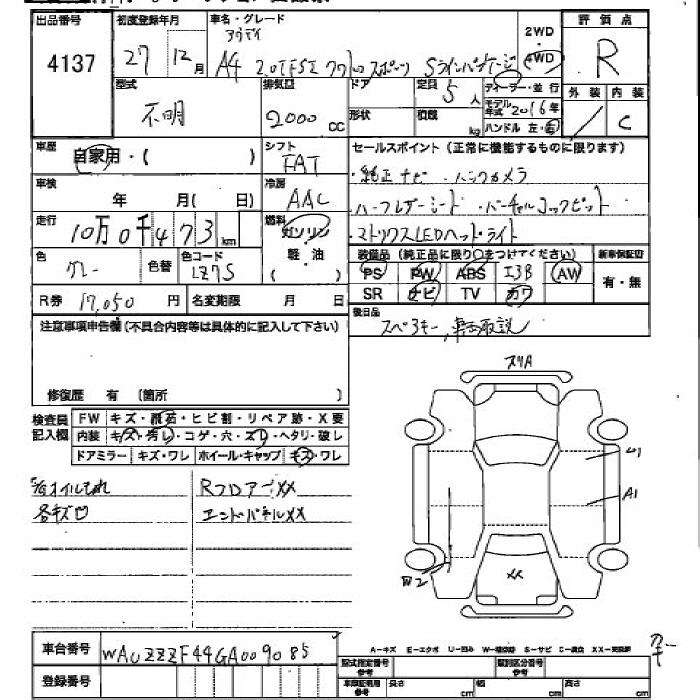 出品番号 初度登録年月 車名・グレード 2WD 評価点
4137 27年 12月 アウディ 4WD R
A4 2.0TFSI クワトロスポーツ Sラインパッケージ
型式 排気量 ドア 定員 ディーラー・並行 外装 内装
不明 2000cc 5人 モデル年式 2016年 / C
形状 積載 kg ハンドル 左・右
車歴 自家用・( ) シフト FAT セールスポイント(正常に機能するものに限ります)
・純正ナビ ・バックカメラ
車検 年 月( 日) 冷房 AAC
・ハーフレザーシート ・バーチャルコックピット
走行 10万0千473km 燃料 ガソリン
・マトリックスLEDヘッドライト
軽・油
( )
色 グレー 色替 色コード LZ7S 装備品(純正品に限り○をつけてください) 新車保証書
PS PW ABS エアB AW 有・無
SR ナビ TV カワ
R券 17,050円 名変期限 月 日
後日品
スペアキー、車両取説
注意事項申告欄(不具合内容等は具体的に記入して下さい)
修復歴 有 (箇所 )
スリA
検査員 FW キズ・飛石・ヒビ割・リペア跡・X要
記入欄 内装 キズ・汚レ・コゲ・穴・スレ・ヘタリ・破レ
ドアミラー キズ・ワレ ホイール・キャップ キズ・ワレ
U1
オイルもれ RフロアーXX
各キズ凹 エンドパネルXX
A1
XX
車台番号 WAUZZZF44GA009085
A-キズ E-エクボ U-凹み S-サビ XX-交換済
型式指定番号 参考 類別区分番号 参考
登録番号 車検証明用 参考 長さ cm 幅 cm 高さ cm